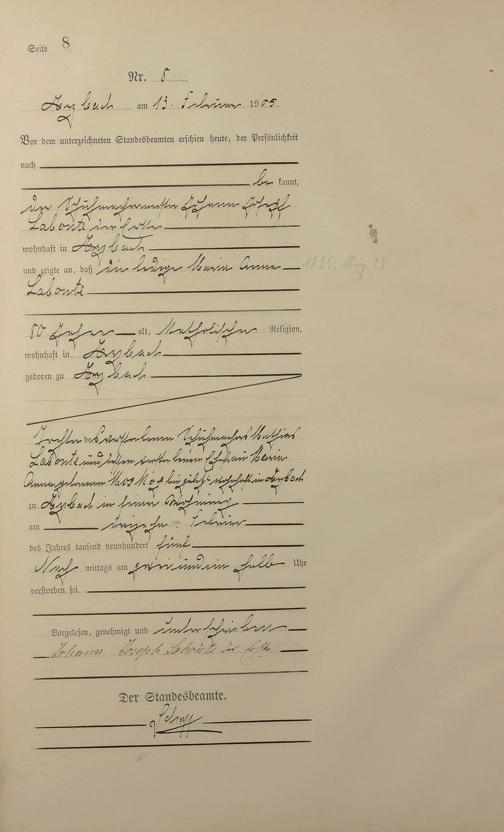 Seite 8
Nr. 8
Arzbach am 13. Februar 1905.
Vor dem unterzeichneten Standesbeamten erschien heute, der Persönlichkeit
nach
be kannt,
der Schuhmachermeister Johann Josef
Labonte der Erste
wohnhaft in Arzbach
und zeigte an, daß die ledige Maria Anna
1825, März 25
Labonte
80 Jahre alt, Katholischer Religion,
wohnhaft in Arzbach
geboren zu Arzbach
Tochter des verstorbenen Schuhmachers Mathias
Labonte und dessen verstorbenen Ehefrau Maria
Anna geborenen wohnhaft in Arzbach
zu Arzbach in seiner Wohnung
am Februar
des Jahres tausend neunhundert fünf
Nach mittags um zwei und ein halb Uhr
verstorben sei.
Vorgelesen, genehmigt und unterschrieben
Johann Joseph Labonte der Erste
Der Standesbeamte.